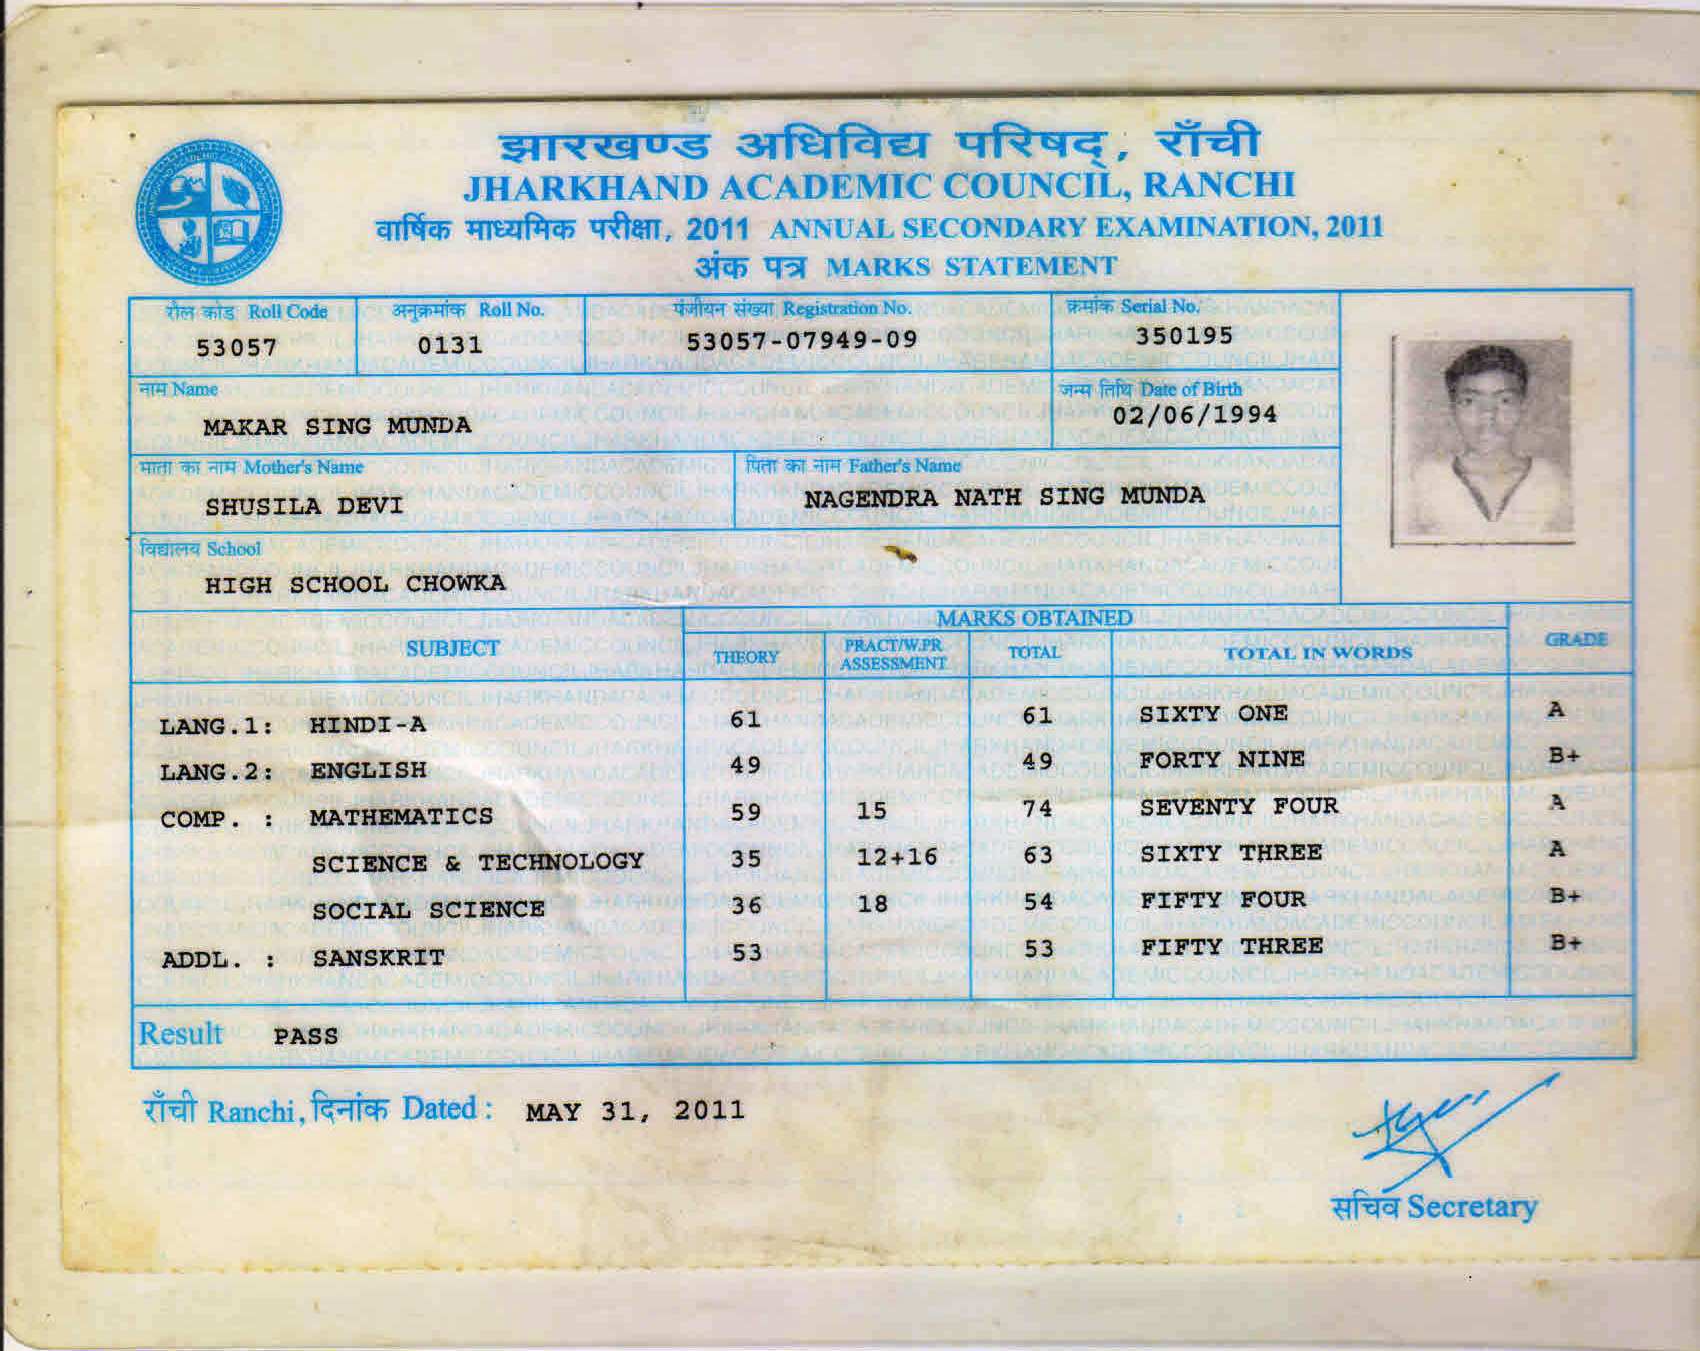 झारखण्ड अधिविद्य परिषद्, राँची
JHARKHAND ACADEMIC COUNCIL, RANCHI
वार्षिक माध्यमिक परीक्षा, 2011 ANNUAL SECONDARY EXAMINATION, 2011
अंक पत्र MARKS STATEMENT
रौल कोड Roll Code अनुक्रमांक Roll No. पंजीयन संख्या Registration No. क्रमांक Serial No.
53057 0131 53057-07949-09 350195
नाम Name जन्म तिथि Date of Birth
MAKAR SING MUNDA 02/06/1994
माता का नाम Mother's Name पिता का नाम Father's Name
SHUSILA DEVI NAGENDRA NATH SING MUNDA
विद्यालय School
HIGH SCHOOL CHOWKA
SUBJECT MARKS OBTAINED GRADE
THEORY PRACT/W.PR ASSESSMENT TOTAL TOTAL IN WORDS
LANG.1: HINDI-A 61 61 SIXTY ONE A
LANG.2: ENGLISH 49 49 FORTY NINE B+
COMP. : MATHEMATICS 59 15 74 SEVENTY FOUR A
SCIENCE & TECHNOLOGY 35 12+16 63 SIXTY THREE A
SOCIAL SCIENCE 36 18 54 FIFTY FOUR B+
ADDL. : SANSKRIT 53 53 FIFTY THREE B+
Result PASS
राँची Ranchi, दिनांक Dated : MAY 31, 2011
सचिव Secretary